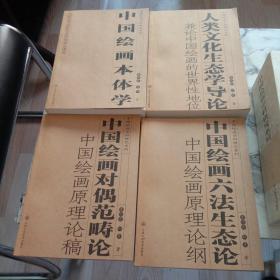 中国绘画本体学
人类文化生态学导论
兼论中国绘画的世界性地位
中国绘画对偶范畴论
中国绘画原理论稿
中国绘画六法生态论
中国绘画原理论纲